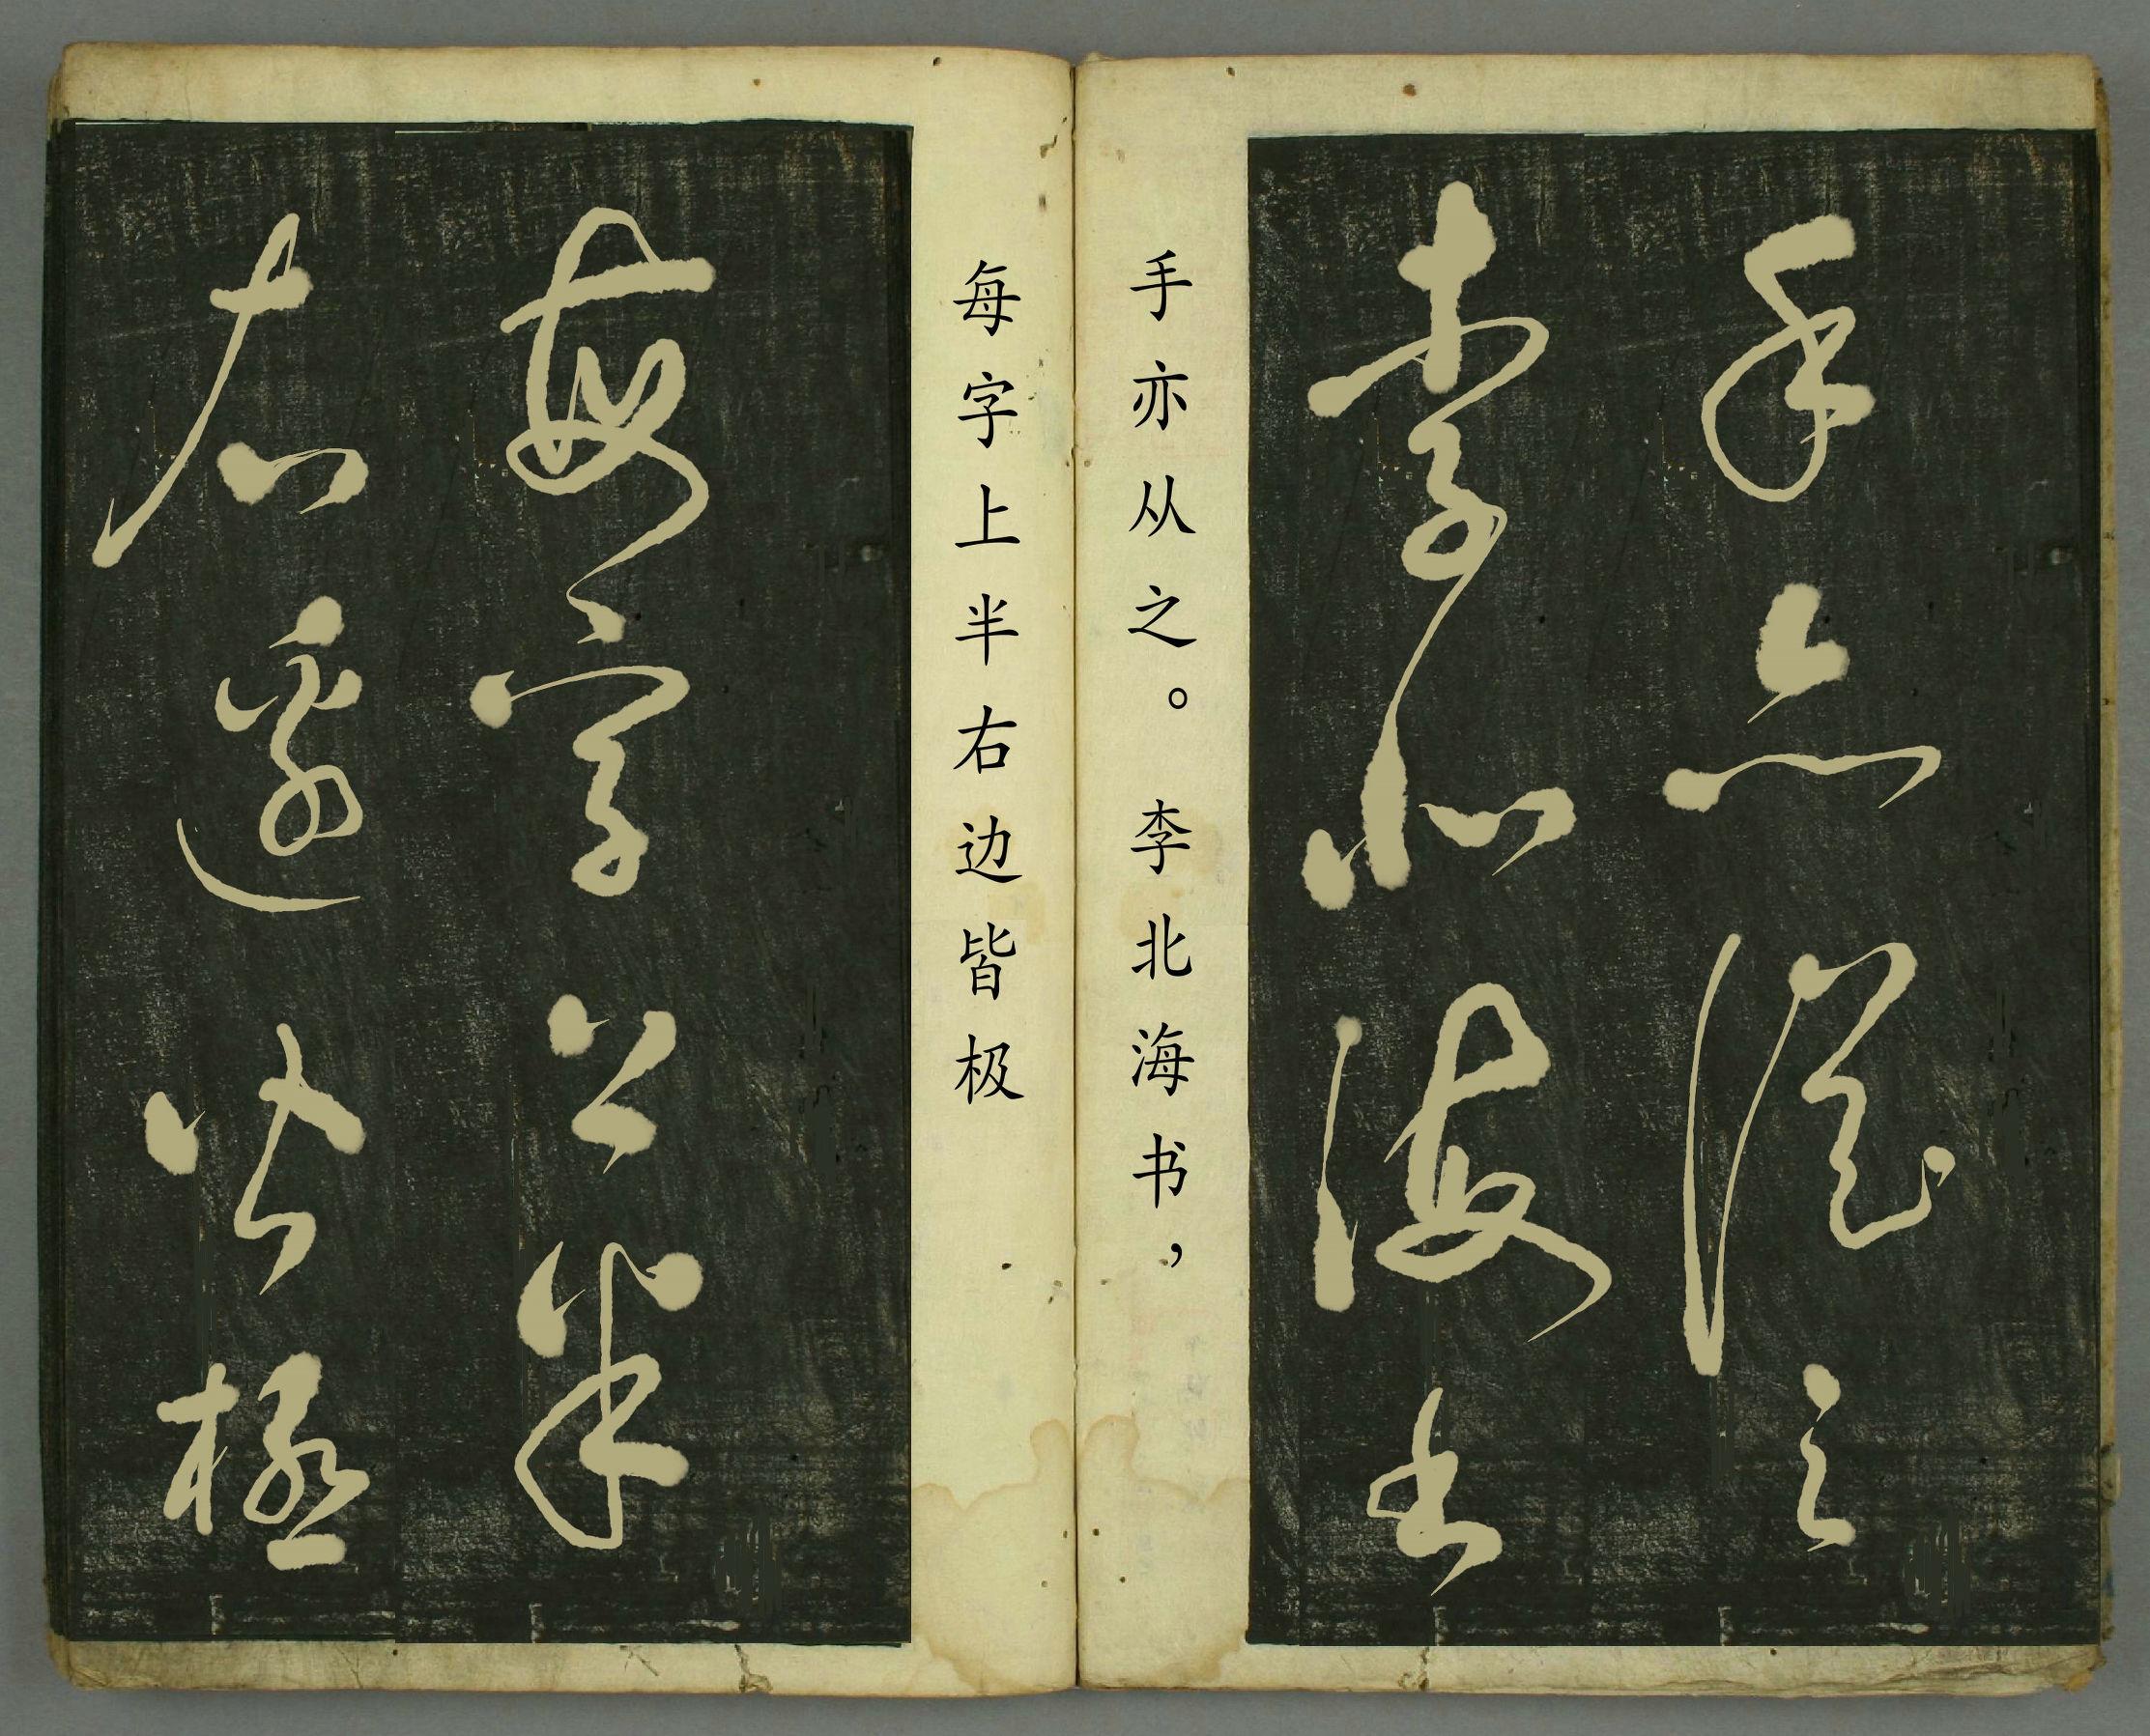 手亦從之
李北海書
手亦从之。李北海书，
每字上半右边皆极
每字上半
右邊皆極